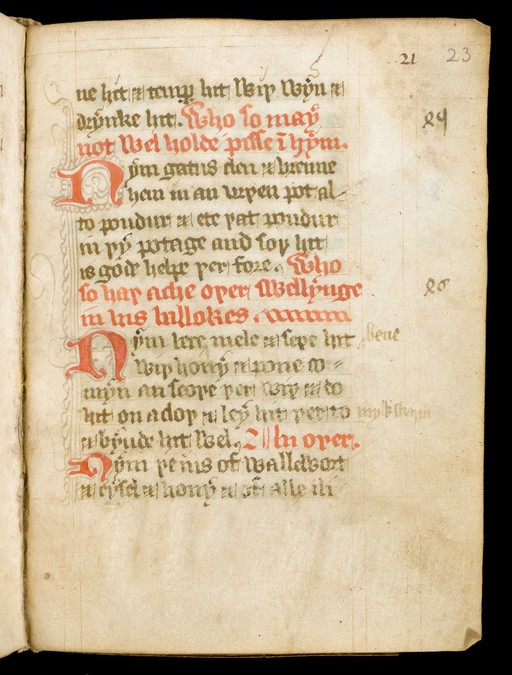 21 23
ne hit & temp hit Wiþ Wẏn &
drẏnke hit. Who so maẏ
not Wel holde pisse ī hẏm.
Nẏm gatus cleu & brenne
hem in an urþen pot al
to poudur & ete þat poudur
in þẏ potage and for hit
is gode helpe þer fore. Who
so haþ ache oþer Wellẏnge
in his ballokes.
Nẏm bere mele & seþe hit
Wiþ honẏ & pone co
mẏn an scope þer Wiþ & to
hit on a dof & leẏ hit þer to
& bẏnde hit Wel. An oþer.
Nẏm þe ius of Wallwort
& eẏsel & honẏ & of alle ili
bene